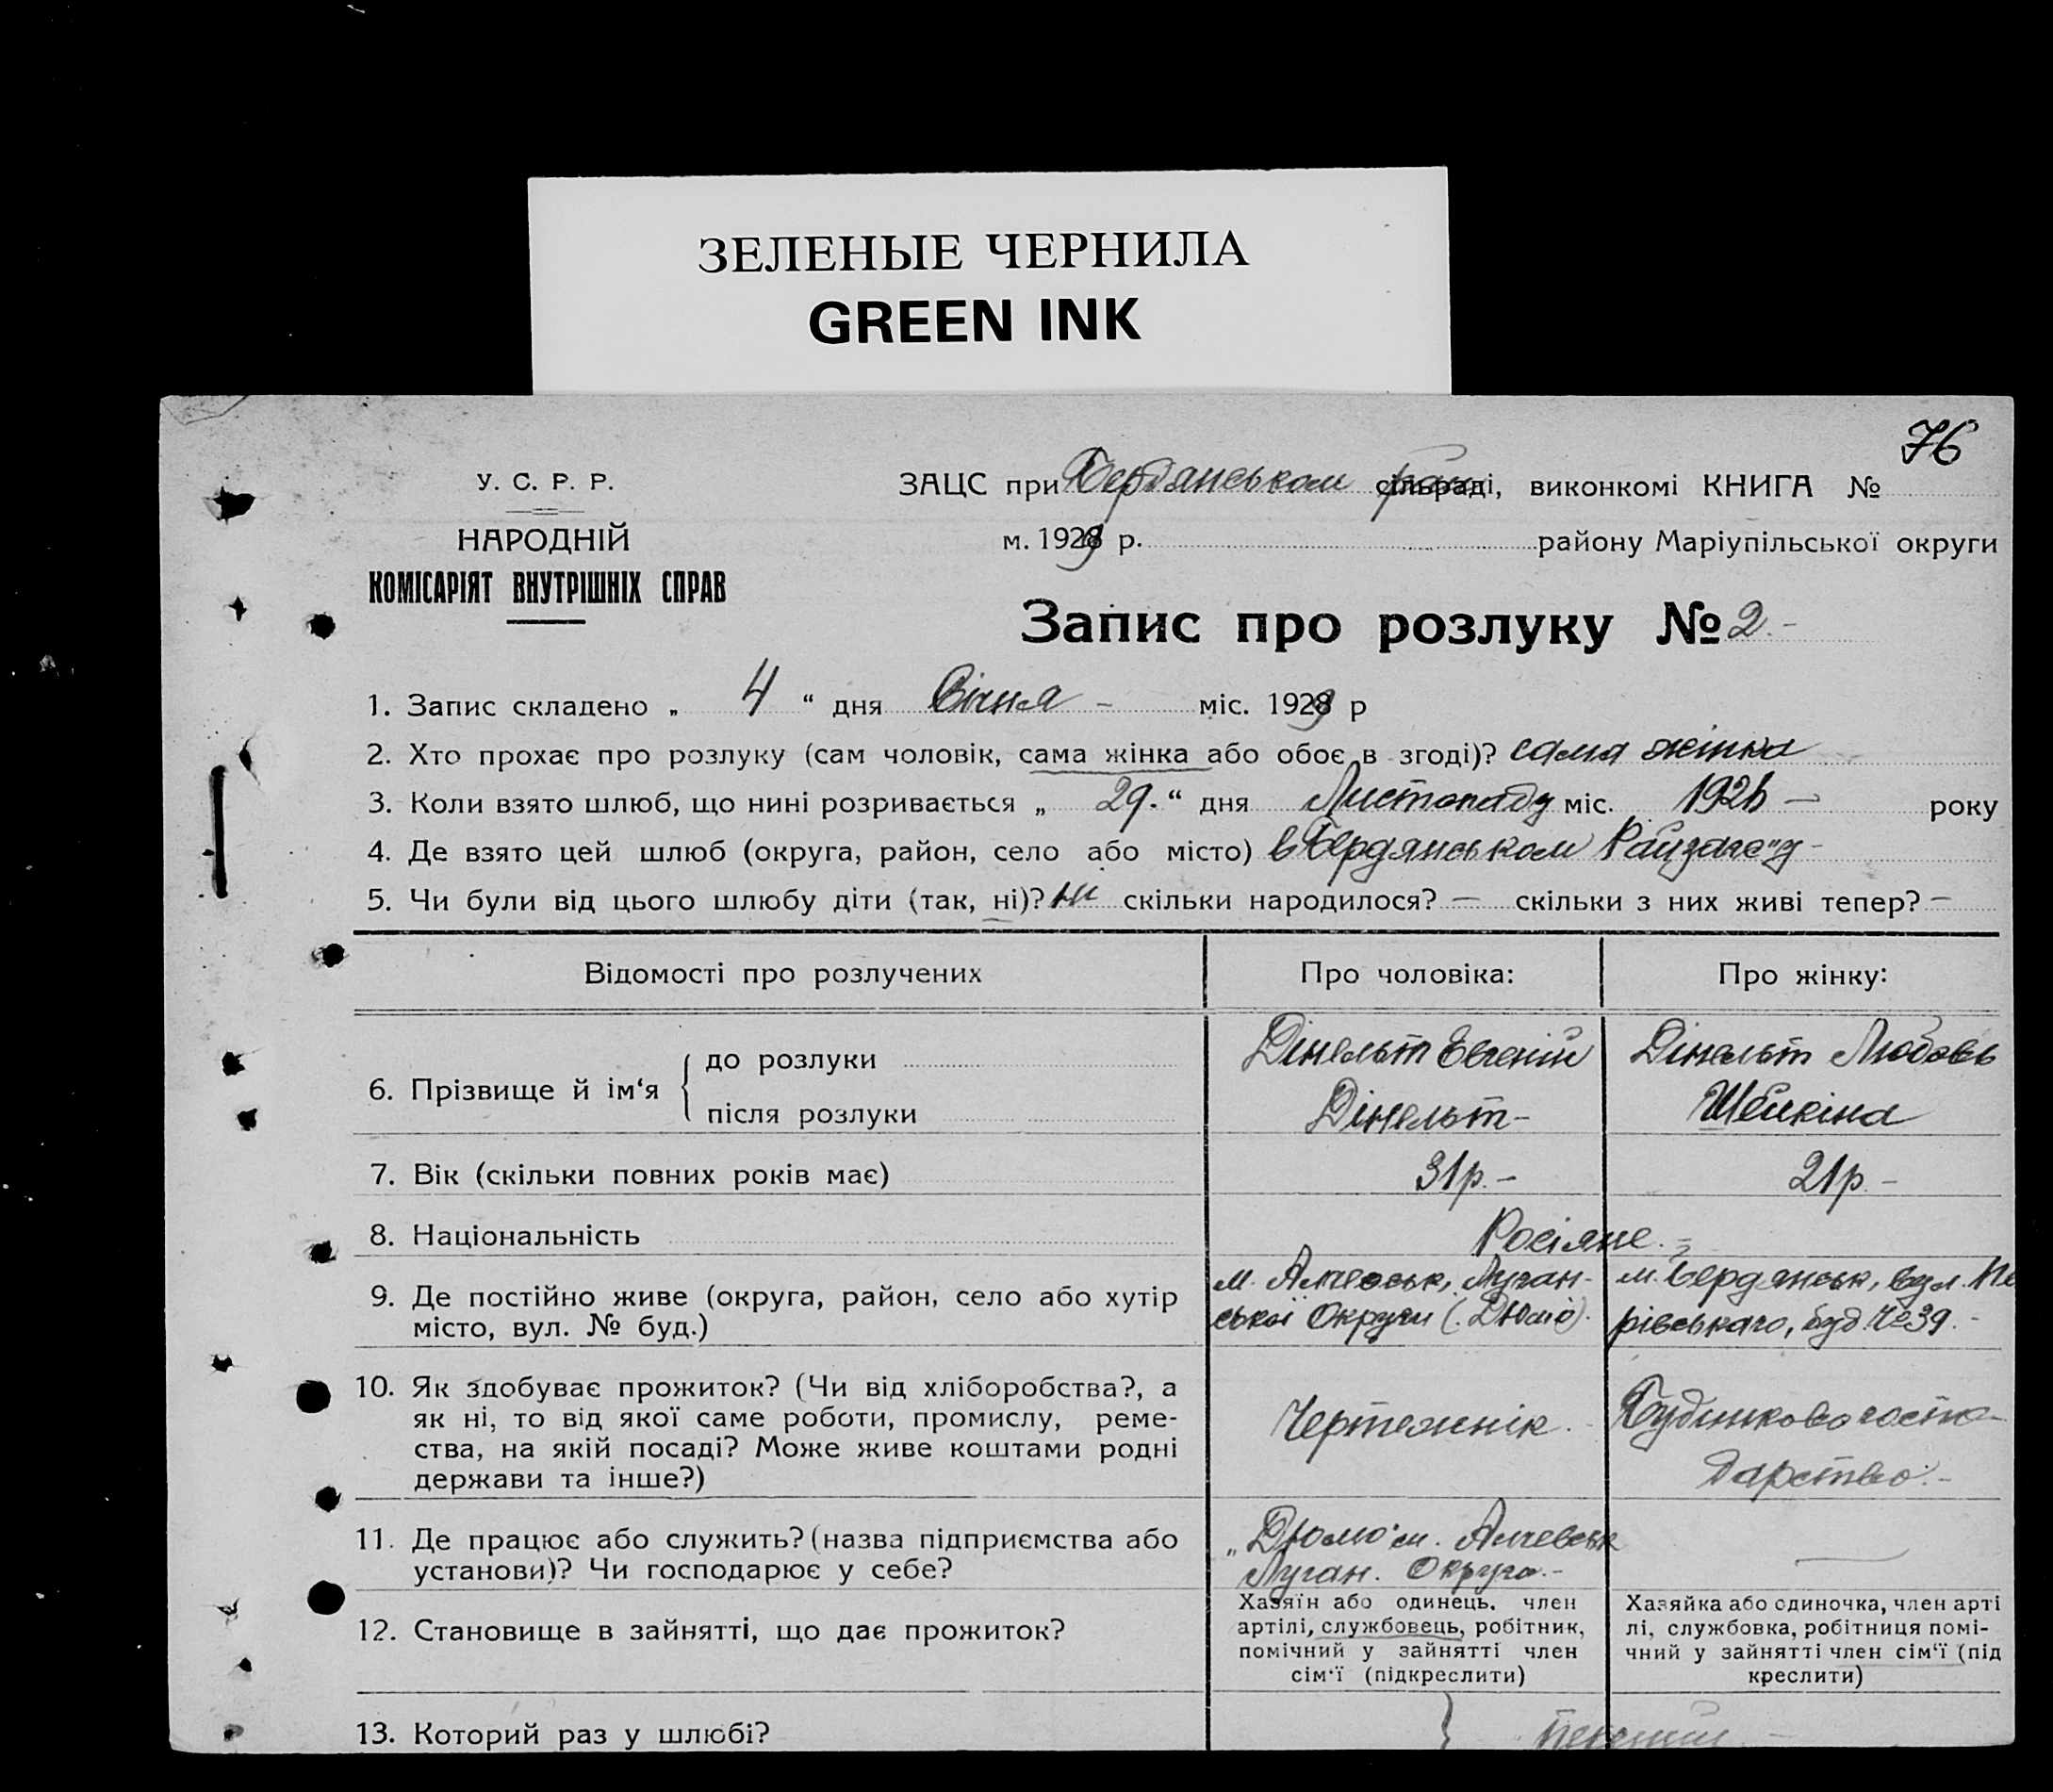 ЗЕЛЕНЫЕ ЧЕРНИЛА
GREEN INK
76
У. С. Р. Р.
НАРОДНІЙ
КОМІСАРІЯТ ВНУТРІШНІХ СПРАВ
ЗАЦС при Бердянськом сільраді, виконкомі КНИГА №
м. 1929 р. району Маріупільської округи
Запис про розлуку № 2.-
1. Запис складено „ 4 “ дня Січня - міс. 1929 р
2. Хто прохає про розлуку (сам чоловік, сама жінка або обоє в згоді)? сама жінка
3. Коли взято шлюб, що нині розривається „ 29. “ дня Листопаду міс. 192 — року
4. Де взято цей шлюб (округа, район, село або місто) в Бердянськом Райзагс'у -
5. Чи були від цього шлюбу діти (так, ні)? ні скільки народилося? — скільки з них живі тепер? —
Відомості про розлучених Про чоловіка: Про жінку:
6. Прізвище й ім‘я
до розлуки Дінельт Евгеній Дінельт Любовь
після розлуки Дінельт - Шейкіна
7. Вік (скільки повних років має) 31р. - 21р. -
8. Національність Росіяне. -
9. Де постійно живе (округа, район, село або хутір
місто, вул. № буд.)
м. Алчевськ, Луган-
ської Округи (Дюмо).
м. Бердянськ, вул. Пе
рівського, буд. №39. -
10. Як здобуває прожиток? (Чи від хліборобства?, а
як ні, то від якої саме роботи, промислу, реме-
ства, на якій посаді? Може живе коштами родні
держави та інше?)
Чертежнік. -
Будинково госпо-
дарство. -
11. Де працює або служить? (назва підприємства або
установи)? Чи господарює у себе?
„Дюмо" м. Алчевськ
Луган. Округа. -
—
12. Становище в зайнятті, що дає прожиток?
Хазяїн або одинець, член
артілі, службовець, робітник,
помічний у зайнятті член
сім‘ї (підкреслити)
Хазяйка або одиночка, член арті
лі, службовка, робітниця помі-
чний у зайнятті член сім‘ї (під
креслити)
13. Которий раз у шлюбі?